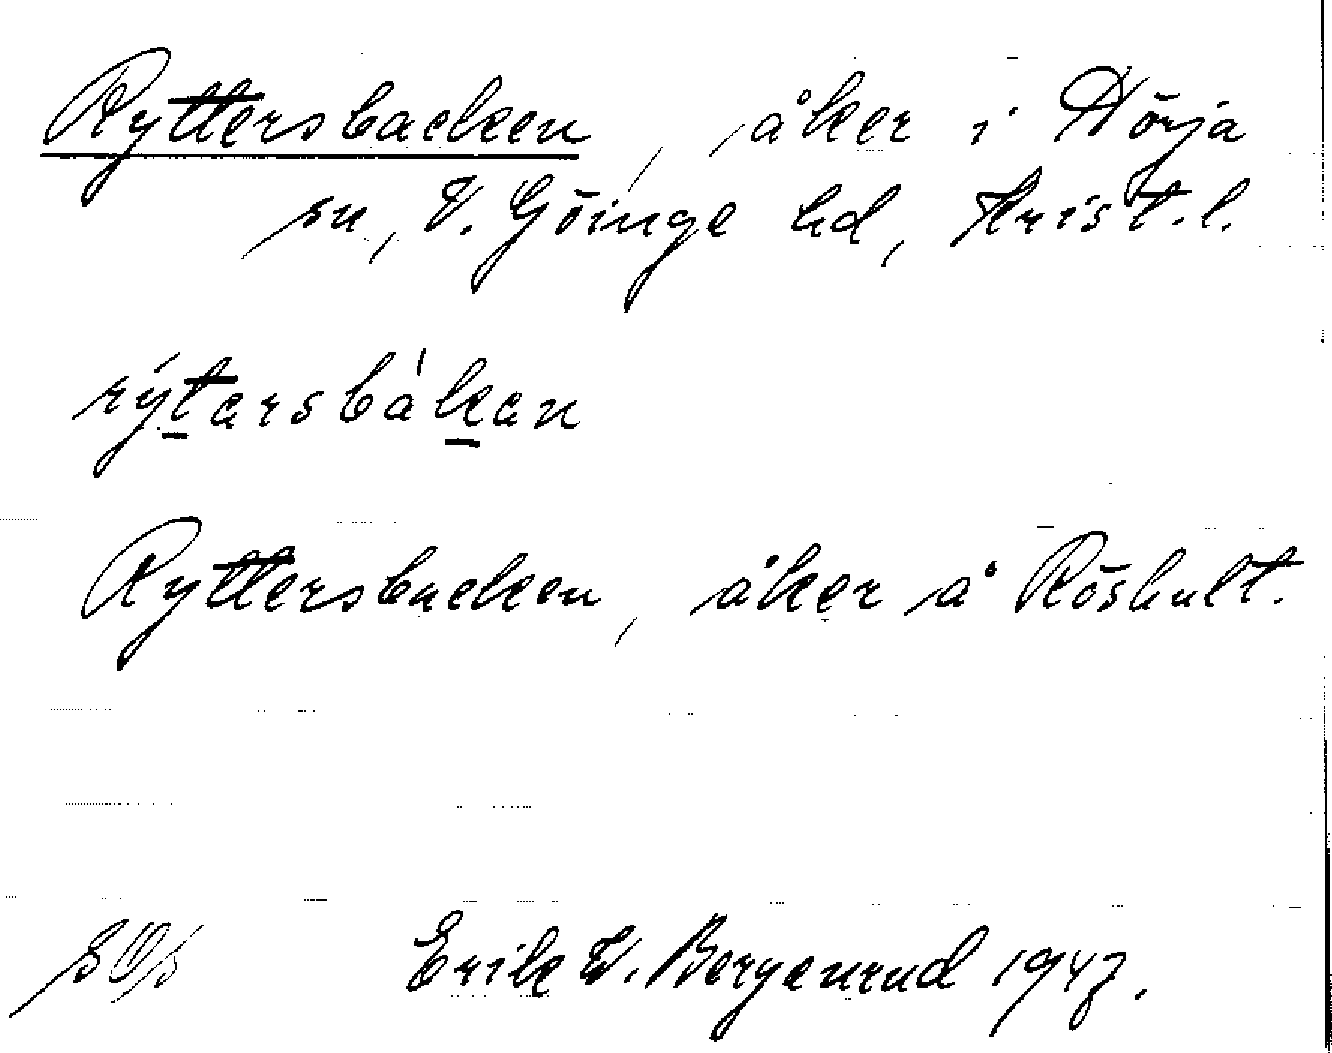 Ryttersbacken, åker i Hörja
sn, V. Göinge hd, Krist. l.
rýt̲arsbák̲an
Ryttersbacken, åker å Röshult.
Erik W. Bergenrud 1947.